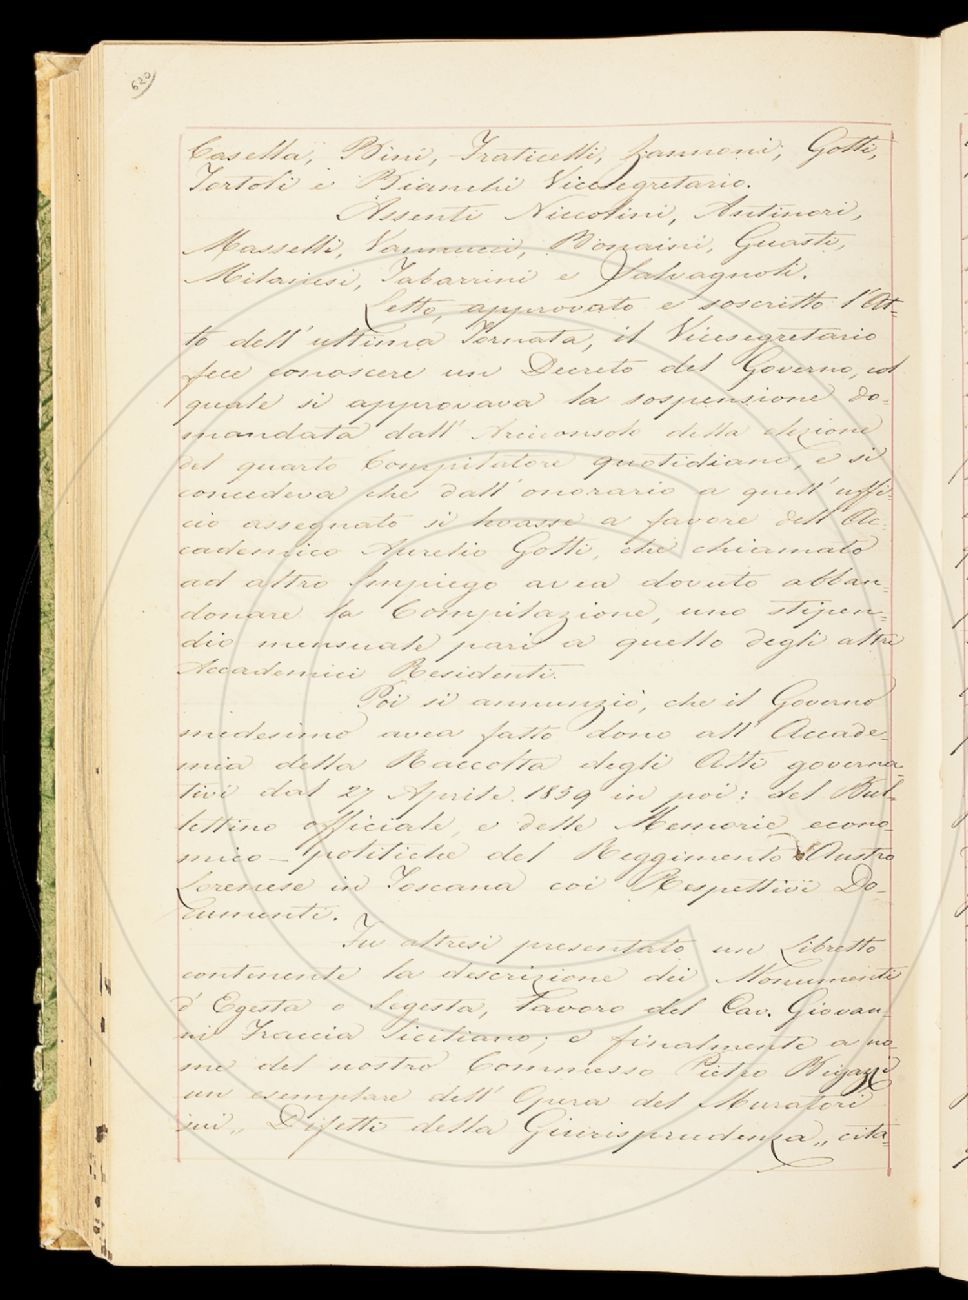 620
Casella, Bini, Fraticelli, Zannoni, Gotti,
Tortoli e Bianchi Vicesegretario.
Assenti Niccolini, Antinori,
Masselli, Vannucci, Bonaini, Guasti,
Milanesi, Tabarrini e Salvagnoli.
Letto, approvato e soscritto l'At-
to dell'ultima Tornata, il Vicesegretario
fece conoscere un Decreto del Governo, col
quale si approvava la sospensione do-
mandata dall'Arciconsolo della elezione
del quarto Compilatore quotidiano, e si
concedeva che dall'onorario a quell'uffi-
cio assegnato si levasse a favore dell'Ac-
cademico Aurelio Gotti, che chiamato
ad altro Impiego avea dovuto abban-
donare la Compilazione, uno stipen-
dio mensuale pari a quello degli altri
Accademici Residenti.
Poi si annunziò, che il Governo
medesimo avea fatto dono all'Accade-
mia della Raccolta degli Atti governa-
tivi dal 27 Aprile 1859 in poi: del Bul-
lettino officiale, e delle Memorie econo-
mico-politiche del Reggimento Austro
Lorenese in Toscana coi Respettivi Do-
cumenti.
Fu altresì presentato un Libretto
contenente la descrizione dei Monumenti
d'Egesta o Segesta, Lavoro del Cav. Giovan-
ni Fraccia Siciliano; e finalmente a no-
me del nostro Commesso Pietro Bigazzi
un esemplare dell'Opera del Muratori
sui „ Difetti della Giurisprudenza „ cita-